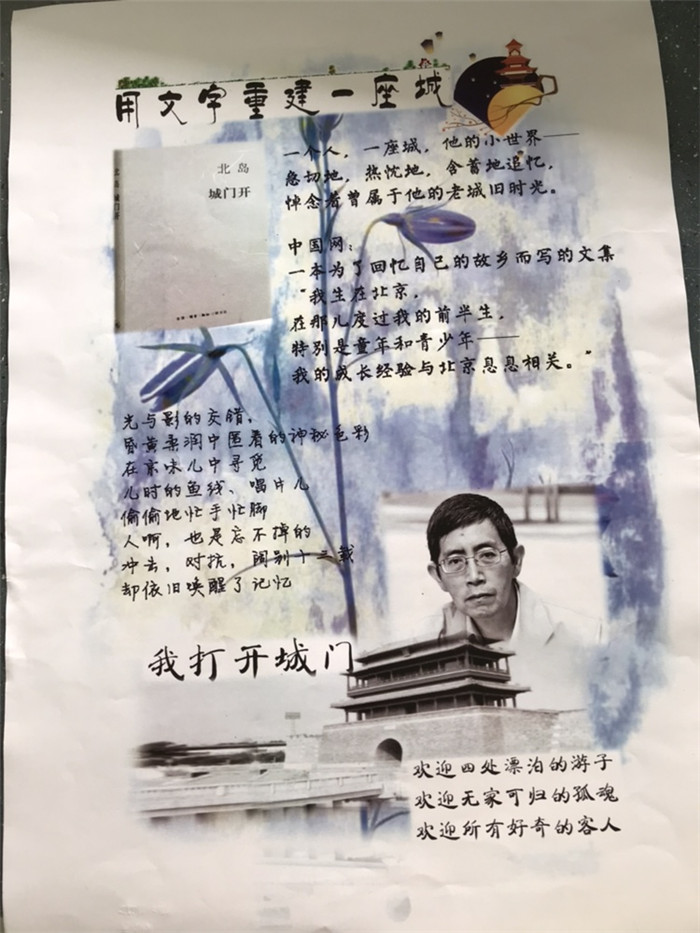 用文字重建一座城
一个人，一座城，他的小世界——
急切地，热忱地，含蓄地追忆，
悼念着曾属于他的老城旧时光。
北岛
城门开
北岛 城门开
中国网：
一本为了回忆自己的故乡而写的文集
“我生在北京，
在那儿度过我的前半生，
特别是童年和青少年——
我的成长经验与北京息息相关。”
光与影的交错，
昏黄柔润中匿着的神秘色彩
在京味儿中寻觅
儿时的鱼线、唱片儿
偷偷地忙手忙脚
人啊，也是忘不掉的
冲击，对抗，阔别十三载
却依旧唤醒了记忆
我打开城门
欢迎四处漂泊的游子
欢迎无家可归的孤魂
欢迎所有好奇的客人